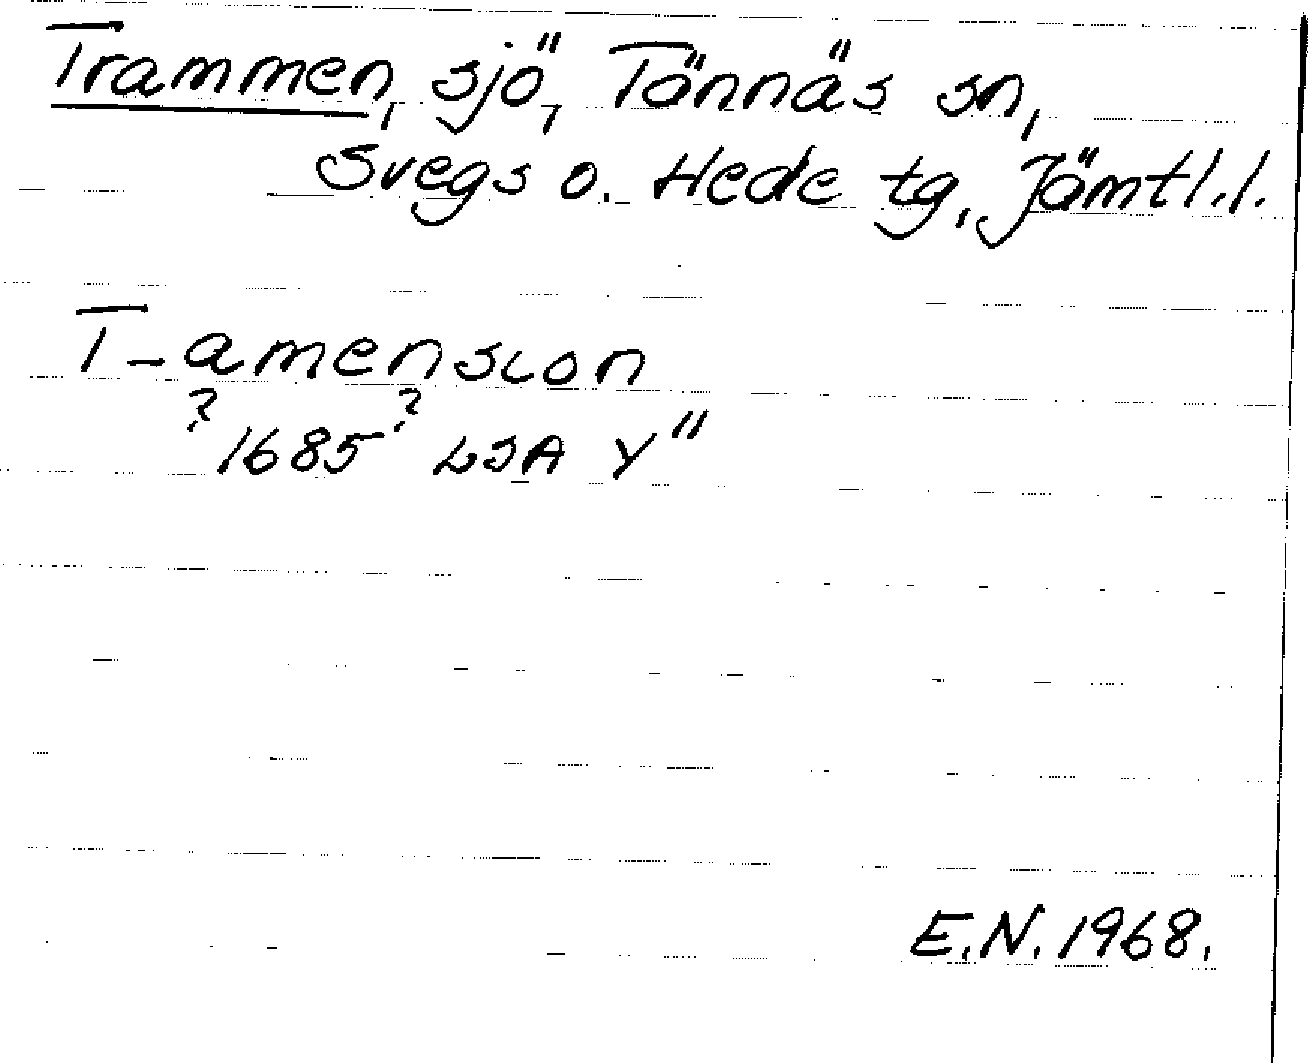 Trammen, sjö, Tännäs sn,
Svegs o. Hede tg, Jämtl.l.
T-amenscon
? ?
1685 LSA Y"
E.N. 1968.